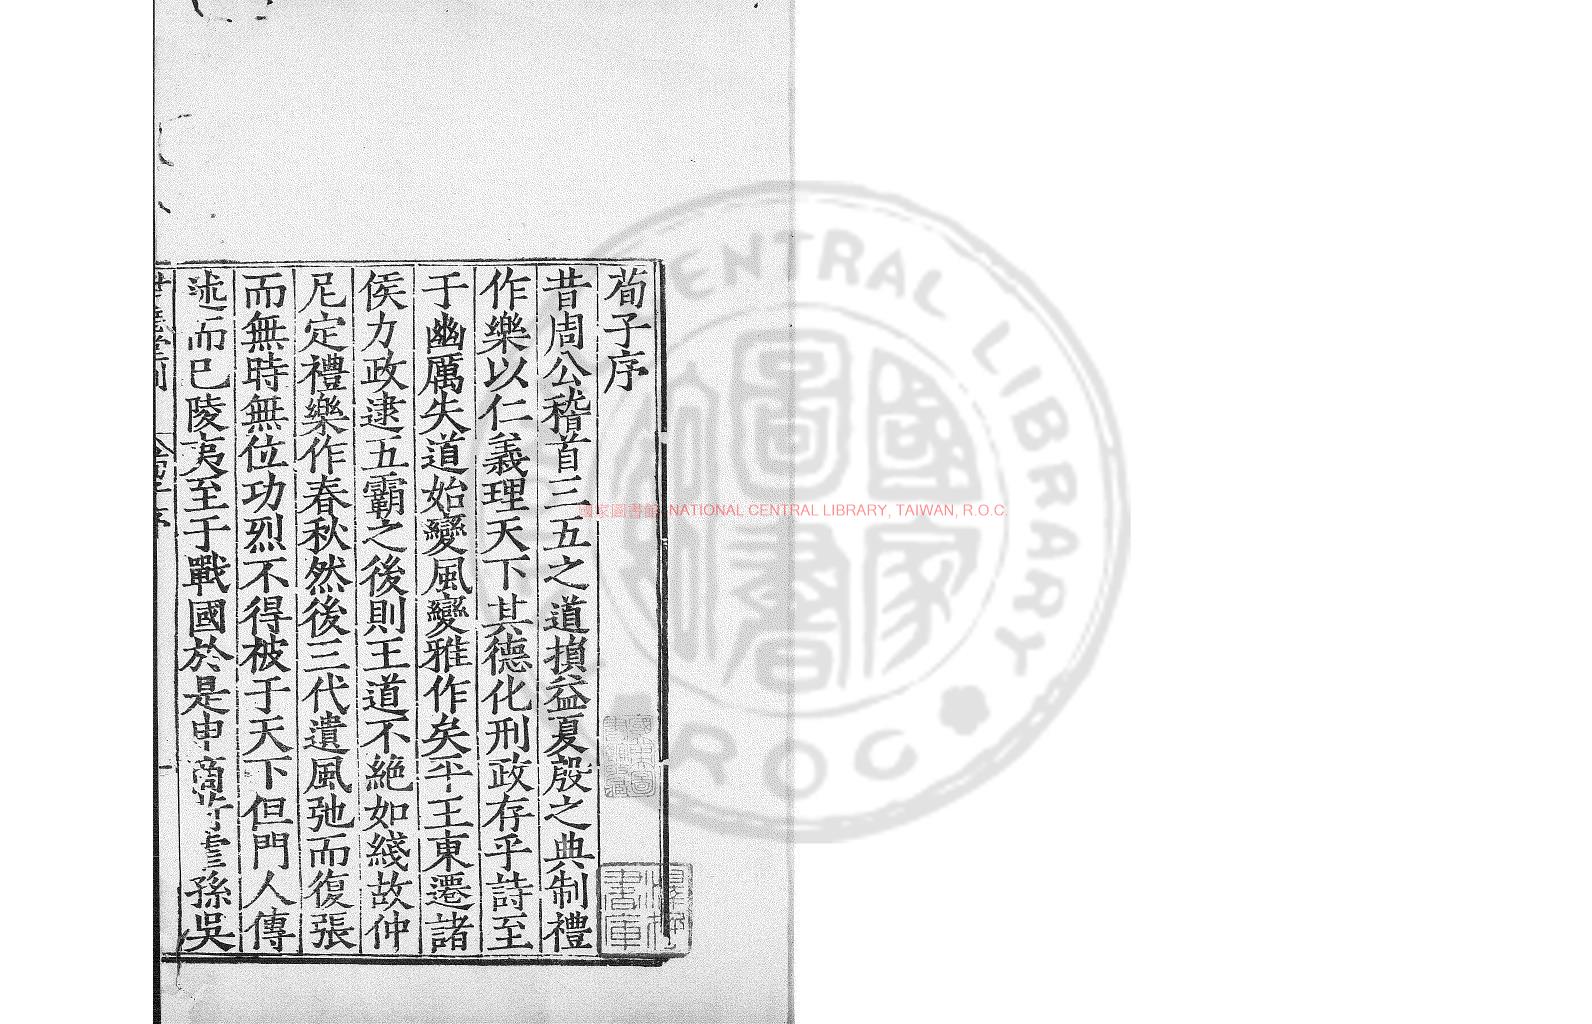 荀子序
昔周公稽首三五之道損益夏殷之典制禮
作樂以仁義理天下其德化刑政存乎詩至
于幽厲失道始變風變雅作矣平王東遷諸
侯力政逮五霸之後則王道不絶如綫故仲
尼定禮樂作春秋然後三代遺風弛而復張
而無時無位功烈不得被于天下但門人傳
述而已陵夷至于戰國於是申商苛虐孫吳
世德堂刊
荀子序
一
國家圖書館, NATIONAL CENTRAL LIBRARY, TAIWAN, R.O.C.
CENTRAL LIBRARY
國家圖書
R O C